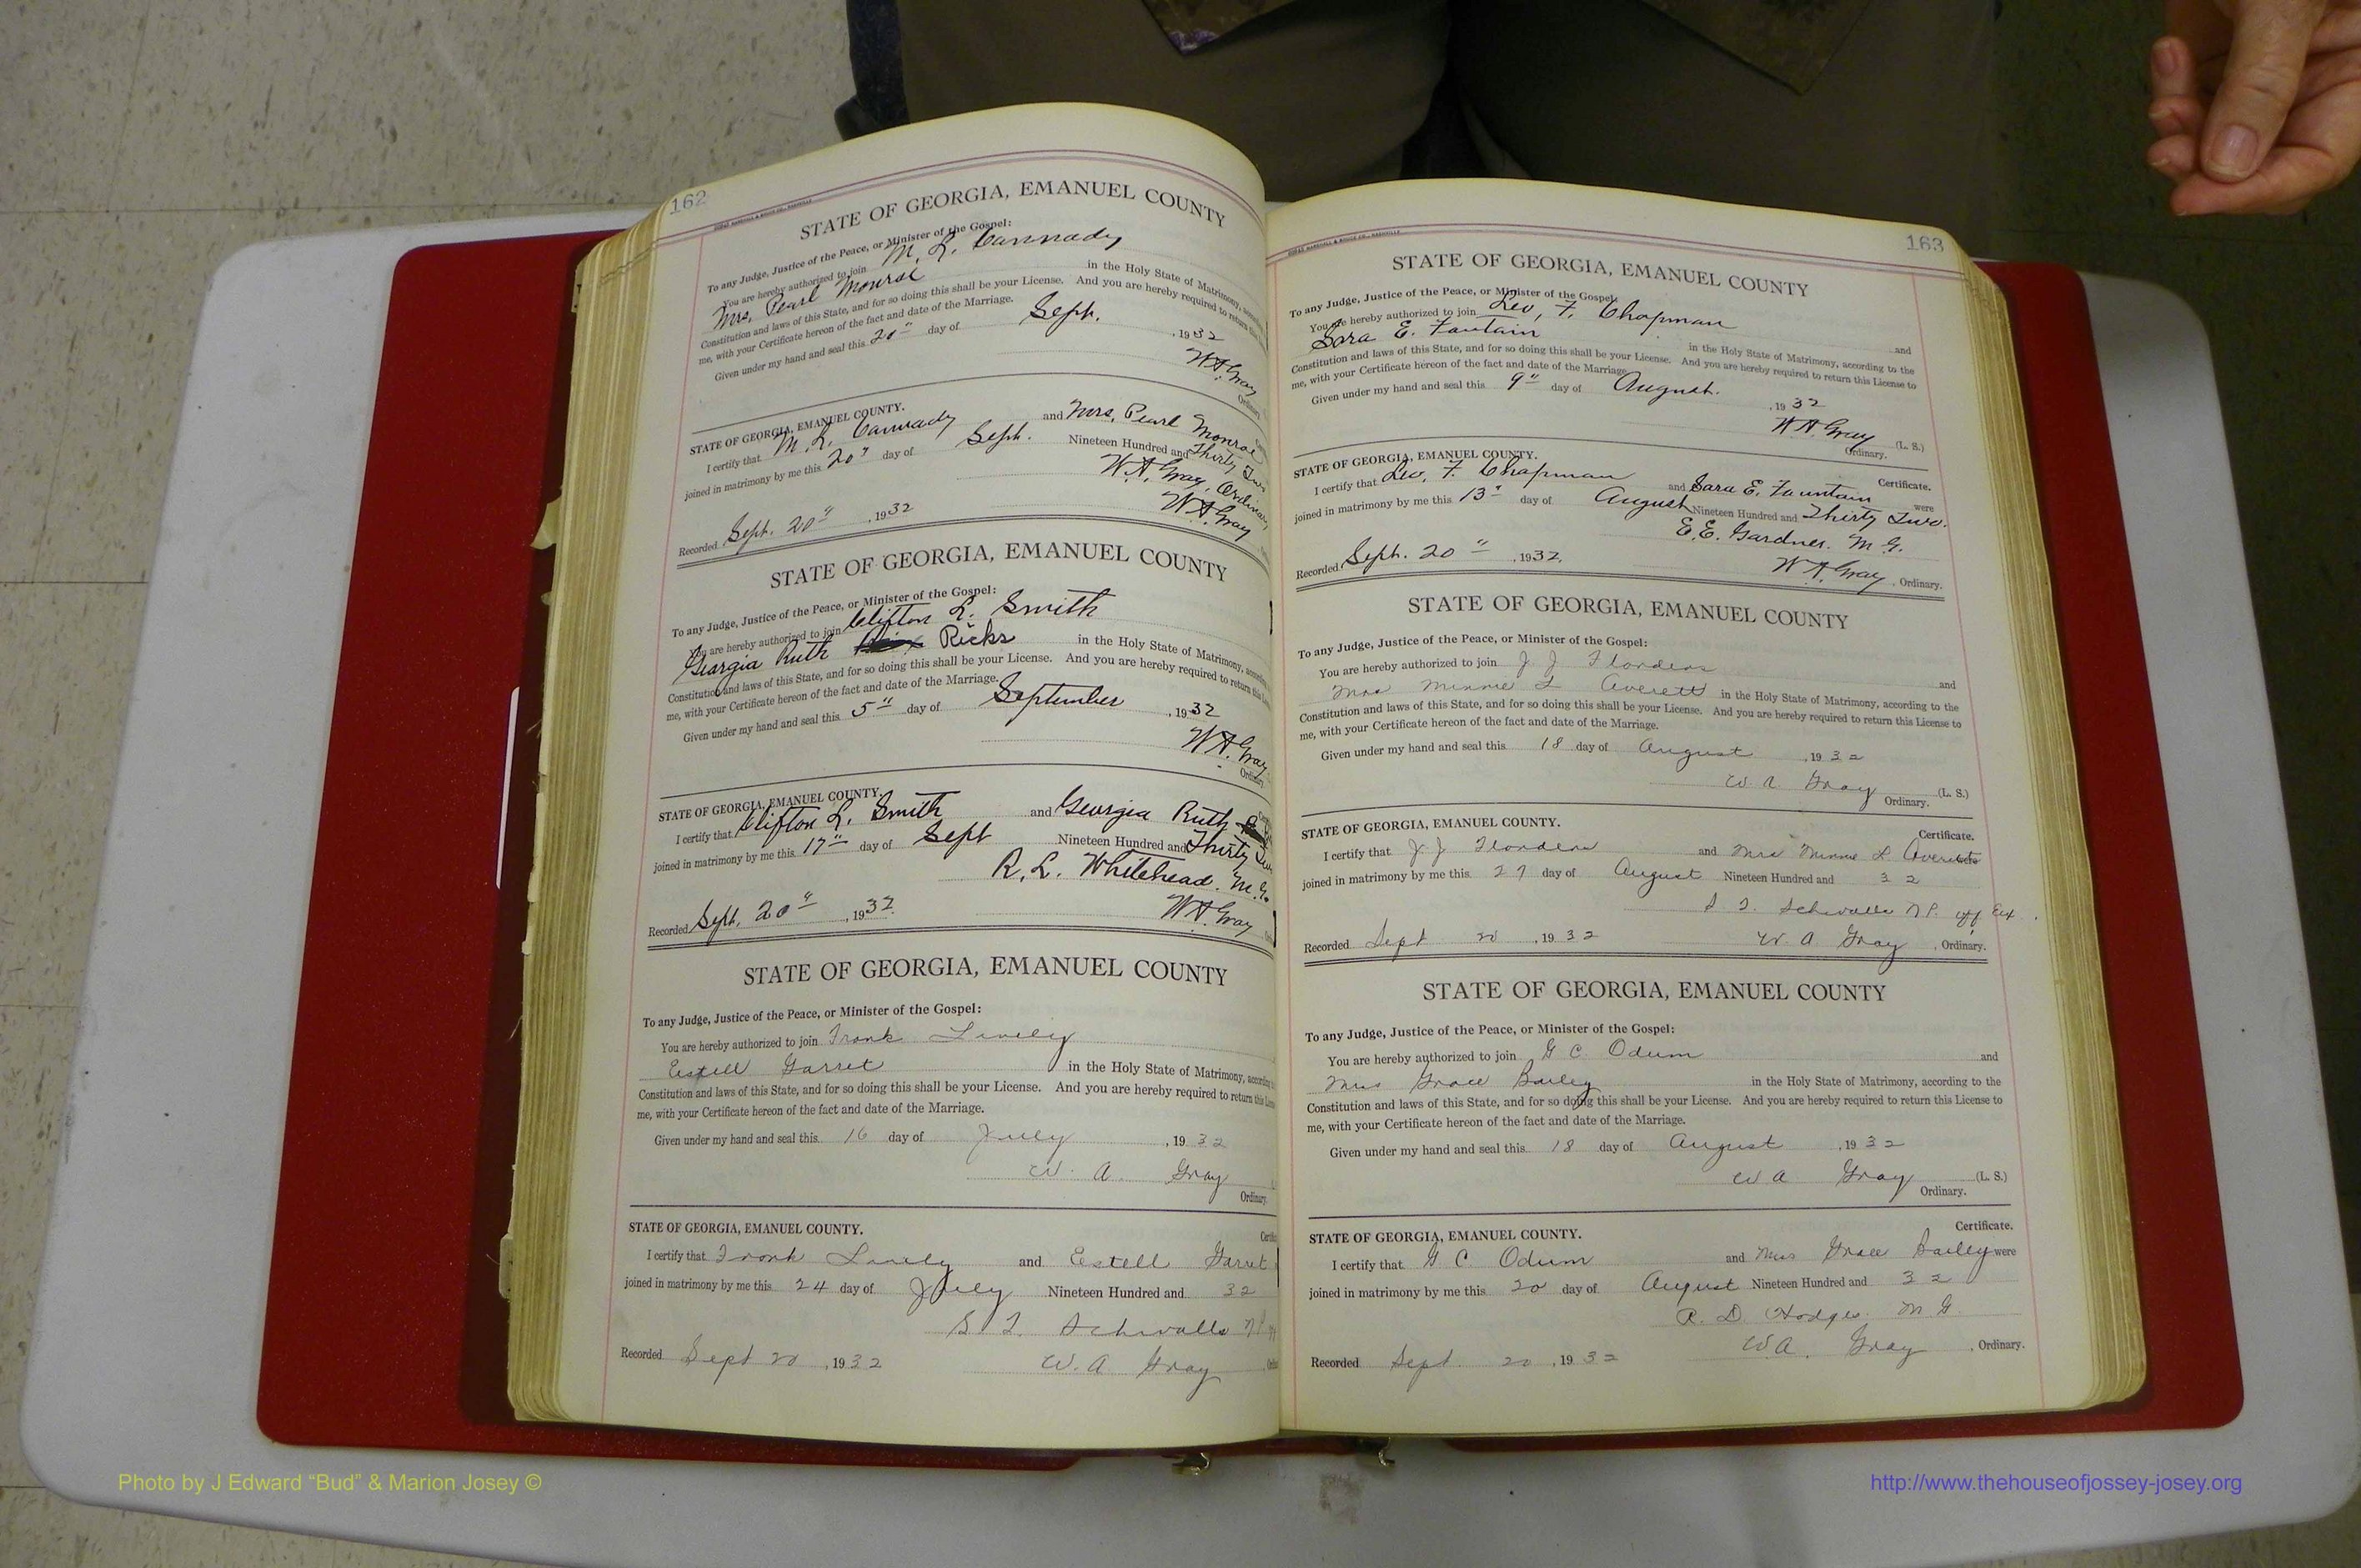 162
STATE OF GEORGIA, EMANUEL COUNTY
To any Judge, Justice of the Peace, or Minister of the Gospel:
You are hereby authorized to join M. L. Cannady
Mrs. Pearl Monroe in the Holy State of Matrimony,
Constitution and laws of this State, and for so doing this shall be your License. And you are hereby required to return this
me, with your Certificate hereon of the fact and date of the Marriage.
Given under my hand and seal this 20" day of Sept. , 1932
W A Gray
Ordinary.
STATE OF GEORGIA, EMANUEL COUNTY.
I certify that M. L. Cannady and Mrs. Pearl Monroe
joined in matrimony by me this 20" day of Sept. Nineteen Hundred and Thirty Two
W. A. Gray, Ordinary
Recorded Sept. 20" , 1932 W. A. Gray
STATE OF GEORGIA, EMANUEL COUNTY
To any Judge, Justice of the Peace, or Minister of the Gospel:
You are hereby authorized to join Clifton L. Smith
Georgia Ruth Ricks in the Holy State of Matrimony,
Constitution and laws of this State, and for so doing this shall be your License. And you are hereby required to return this
me, with your Certificate hereon of the fact and date of the Marriage.
Given under my hand and seal this 5" day of September , 1932
W. A. Gray
Ordinary.
STATE OF GEORGIA, EMANUEL COUNTY.
I certify that Clifton L. Smith and Georgia Ruth
joined in matrimony by me this 17" day of Sept Nineteen Hundred and Thirty Two
R. L. Whitehead. M. G.
Recorded Sept. 20" , 1932. W A Gray
STATE OF GEORGIA, EMANUEL COUNTY
To any Judge, Justice of the Peace, or Minister of the Gospel:
You are hereby authorized to join Frank Lively
Estell Garret in the Holy State of Matrimony,
Constitution and laws of this State, and for so doing this shall be your License. And you are hereby required to return this
me, with your Certificate hereon of the fact and date of the Marriage.
Given under my hand and seal this 16 day of July , 1932
W. A. Gray
Ordinary.
STATE OF GEORGIA, EMANUEL COUNTY.
I certify that Frank Lively and Estell Garret
joined in matrimony by me this 24 day of July Nineteen Hundred and 32
S. I. Schwalls N P
Recorded Sept 20 , 1932 W. A Gray
163
STATE OF GEORGIA, EMANUEL COUNTY
To any Judge, Justice of the Peace, or Minister of the Gospel:
You are hereby authorized to join Leo, F. Chapman and
Sara E. Fountain in the Holy State of Matrimony, according to the
Constitution and laws of this State, and for so doing this shall be your License. And you are hereby required to return this License to
me, with your Certificate hereon of the fact and date of the Marriage.
Given under my hand and seal this 9" day of August. , 1932
W A Gray (L. S.)
Ordinary.
STATE OF GEORGIA, EMANUEL COUNTY. Certificate.
I certify that Leo, F. Chapman and Sara E. Fountain were
joined in matrimony by me this 13" day of August Nineteen Hundred and Thirty Two.
E. E. Gardner. M. G.
Recorded Sept. 20" , 1932. W. A. Gray , Ordinary.
STATE OF GEORGIA, EMANUEL COUNTY
To any Judge, Justice of the Peace, or Minister of the Gospel:
You are hereby authorized to join J. J Flanders and
Mrs Minnie L Averett in the Holy State of Matrimony, according to the
Constitution and laws of this State, and for so doing this shall be your License. And you are hereby required to return this License to
me, with your Certificate hereon of the fact and date of the Marriage.
Given under my hand and seal this 18 day of August , 1932
W. A Gray (L. S.)
Ordinary.
STATE OF GEORGIA, EMANUEL COUNTY. Certificate.
I certify that J. J Flanders and Mrs Minnie L Averett were
joined in matrimony by me this 27 day of August Nineteen Hundred and 32
S I. Schwalls N P.
Recorded Sept 20 , 1932 W. A Gray , Ordinary.
STATE OF GEORGIA, EMANUEL COUNTY
To any Judge, Justice of the Peace, or Minister of the Gospel:
You are hereby authorized to join G C. Odum and
Miss Grace Bailey in the Holy State of Matrimony, according to the
Constitution and laws of this State, and for so doing this shall be your License. And you are hereby required to return this License to
me, with your Certificate hereon of the fact and date of the Marriage.
Given under my hand and seal this 18 day of August , 1932
W A Gray (L. S.)
Ordinary.
STATE OF GEORGIA, EMANUEL COUNTY. Certificate.
I certify that G C. Odum and Miss Grace Bailey were
joined in matrimony by me this 20 day of August Nineteen Hundred and 32
R. D Hodges. M. G.
Recorded Sept. 20 , 1932 W A. Gray , Ordinary.
Photo by J Edward “Bud” & Marion Josey ©
http://www.thehouseofjossey-josey.org